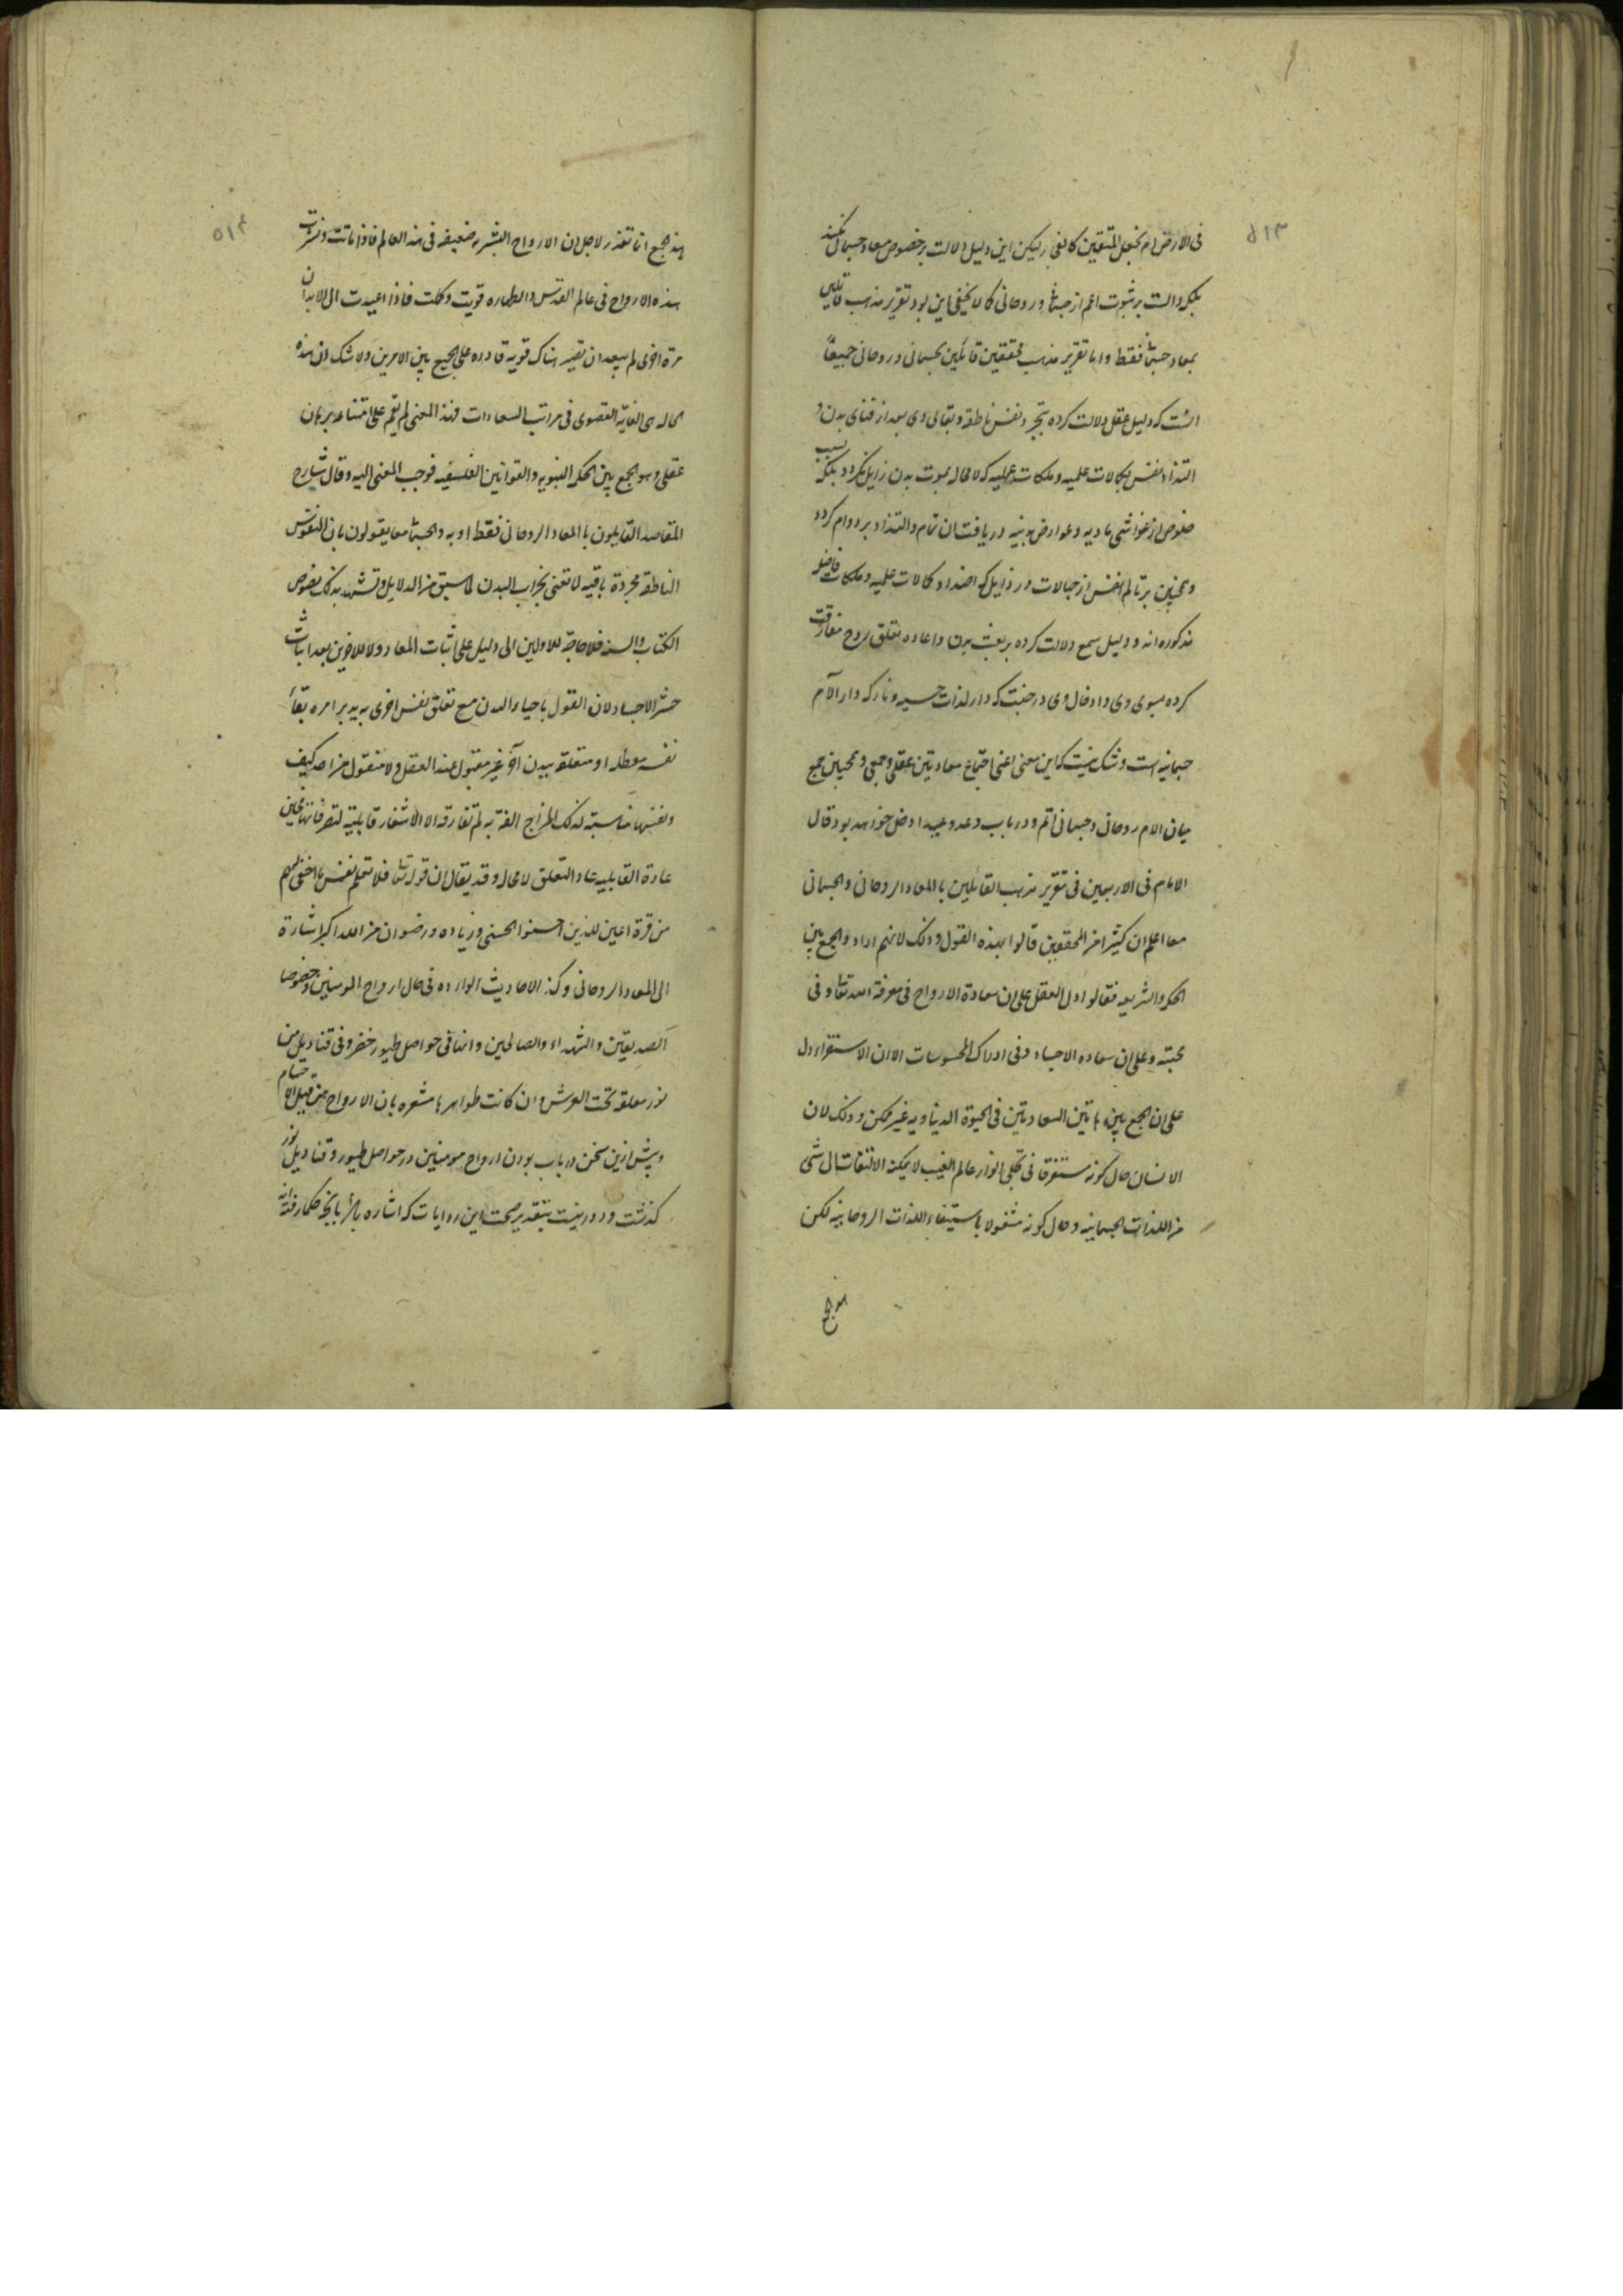 ۵۱۳
فی الارض ام نجعل المتقین کالفجار لیکن این دلیل دلالت بر خصوص معاد جسمانی نمیکند
بلکه دالست بر ثبوت اعم از جسمانی و روحانی کما لا یخفی این بود تقریر مذهب قایلین
بمعاد جسمانی فقط و اما تقریر مذهب محققین قائلین بجسمانی و روحانی جمیعًا
انست که دلیل عقل دلالت کرده بتجرد نفس ناطقه و بقای وی بعد از فنای بدن و
التذاذ نفس بکمالات علمیه و ملکات عملیه که لا محاله بموت بدن زایل نگردد بلکه بسبب
خلوص از غواشی مادیه و عوارض بدنیه دریافت ان تمام و التذاذ بر دوام گردد
و همچنین بر تالم نفس از جهالات و رذایل که اضداد کمالات علمیه و ملکات فاضله
مذکوره اند و دلیل سمع دلالت کرده بر بعث بدن و اعاده تعلق روح مفارقت
کرده بسوی وی و ادخال وی در جنت که دار لذات حسیه و نار که دار الآم
جسمانیه است و شک نیست که این معنی اعنی اجتماع سعادتین عقلی و سمعی و همچنین جمع
میان الام روحانی و جسمانی اتم و در باب وعد و وعید ادخل خواهد بود قال
الامام فی الاربعین فی تقریر مذهب القائلین بالمعاد الروحانی و الجسمانی
معا اعلم ان کثیرا من المحققین قالوا بهذه القول و ذلک لانهم ارادوا الجمع بین
الحکمه و الشریعه فقالوا دل العقل علی ان سعادة الارواح فی معرفة الله تعالی و فی
محبته و علی ان سعاده الاجساد و فی ادراک المحسوسات الا ان الاستقراء دل
علی ان الجمع بین هاتین السعادتین فی الحیوة الدنیاویه غیر ممکن و ذلک لان
الانسان حال کونه مستغرقا فی تجلی انوار عالم الغیب لا یمکنه الالتفات الی شی
من اللذات الجسمانیه و حال کونه مشغولا باستیفاء اللذات الروحانیه لکن
هذ الجمع
۵۱۴
هذ الجمع انما تعذر لاجل ان الارواح البشریه ضعیفه فی هذ العالم فاذا ماتت و فارقت
هذه الارواح فی عالم القدس و الطهاره قویت و کملت فاذا اعیدت الی الابدان
مرة اخری لم یبعد ان تصیر هناک قویه قادره علی الجمع بین الامرین و لا شک ان هذه
الحاله هی الغایة القصوی فی مراتب السعادات فهذ المعنی لم یقم علی امتناعه برهان
عقلی و هو الجمع بین الحکمه النبویه و القوانین الفلسفیه فوجب المعنی الیه و قال شارح
المقاصد القایلون بالمعاد الروحانی فقط او به و الجسمانی معا یقولون بان النفوس
الناطقه مجردة باقیه لا تفنی بخراب البدن لما سبق من الدلایل و تشهد بذلک نصوص
الکتاب و السنه فلا حاجة للاولین الی دلیل علی اثبات المعاد و لا للاخرین بعد اثبات
حشر الاجساد لان القول باحیاء البدن مع تعلق نفس اخری به یدبر امره و بقاء
نفسه معطله او متعلقه ببدن آخر غیر مقبول عند العقل و لا منقول من احد کیف
و نفسها مناسبته لذلک المزاج الفة به لم تفارقه الا لانتفاء قابلیته لتصرفاتها فحین
عادة القابلیه عاد التعلق لا محاله و قد یقال ان قوله تعالی فلا تعلم نفس ما اخفی لهم
من قرة اعین للذین احسنوا الحسنی و زیاده و رضوان من الله اکبر اشارة
الی المعاد الروحانی و کذ الاحادیث الوارده فی حال ارواح المومنین و خصوصا
الصدیقین و الشهداء و الصالحین و انها فی حواصل طیور خضر و فی قنادیل من
نور معلقه تحت العرش و ان کانت ظواهرها مشعره بان الارواح من قبیل الاجسام
و پیش ازین سخن در باب بودن ارواح مومنین در حواصل طیور و قنادیل نور
گذشت و دور نیست بتقدیر صحت این روایات که اشاره باشد بانچه حکما رفته اند